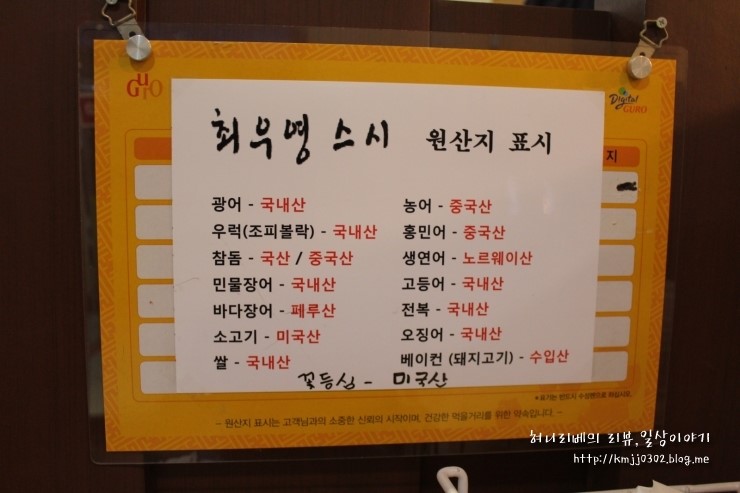 GurO
Digital
GURO
최우영 스시 원산지 표시
지
광어 - 국내산
우럭(조피볼락) - 국내산
참돔 - 국산 / 중국산
민물장어 - 국내산
바다장어 - 페루산
소고기 - 미국산
쌀 - 국내산
농어 - 중국산
홍민어 - 중국산
생연어 - 노르웨이산
고등어 - 국내산
전복 - 국내산
오징어 - 국내산
베이컨 (돼지고기) - 수입산
꽃등심 - 미국산
*표기는 반드시 수성펜으로 하십시오.
- 원산지 표시는 고객님과의 소중한 신뢰의 시작이며, 건강한 먹을거리를 위한 약속입니다. -
허니리베의 리뷰,일상이야기
http://kmjj0302.blog.me